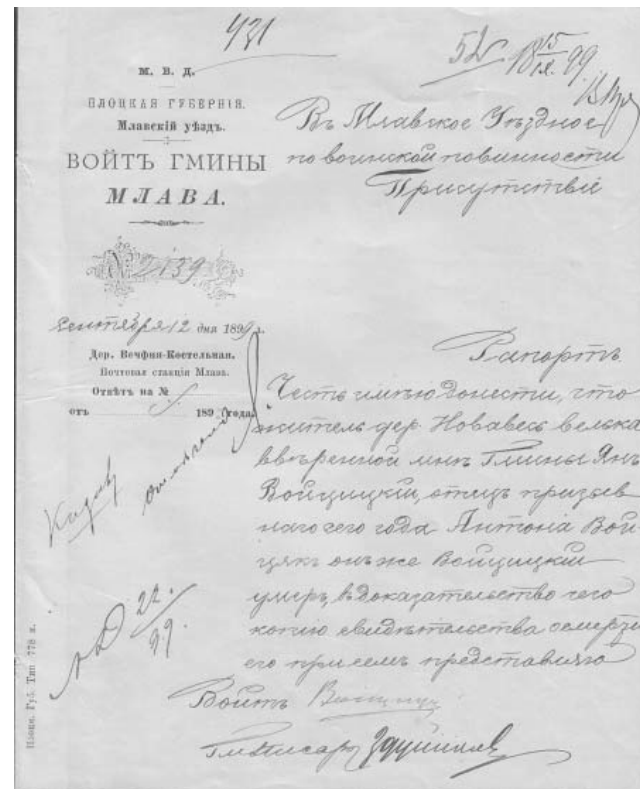 431
52 18 15/IX 99
М. В. Д.
ПЛОЦКАЯ ГУБЕРНІЯ.
Млавскій уѣздъ.
ВОЙТЪ ГМИНЫ
МЛАВА.
№ 2139
Сентября 12 дня 1899 г.
Дер. Вечфня-Костельная.
Почтовая станція Млава.
Отвѣтъ на №
отъ 189 года.
Въ Млавское Уѣздное
по воинской повинности
Присутствіе
Рапортъ.
Честь имѣю донести, что
житель дер. Новавесь велька
ввѣренной мнѣ Гмины Янъ
Войцицкій, отецъ призыв
наго сего года Антонія Вой
цякъ онъ же Войцицкій
умеръ, въ доказательство чего
копію свидѣтельства о смерти
его при семъ представляю
Войтъ
Гм. Писарь
22/99.
Плоцк. Губ. Тип. 778 г.